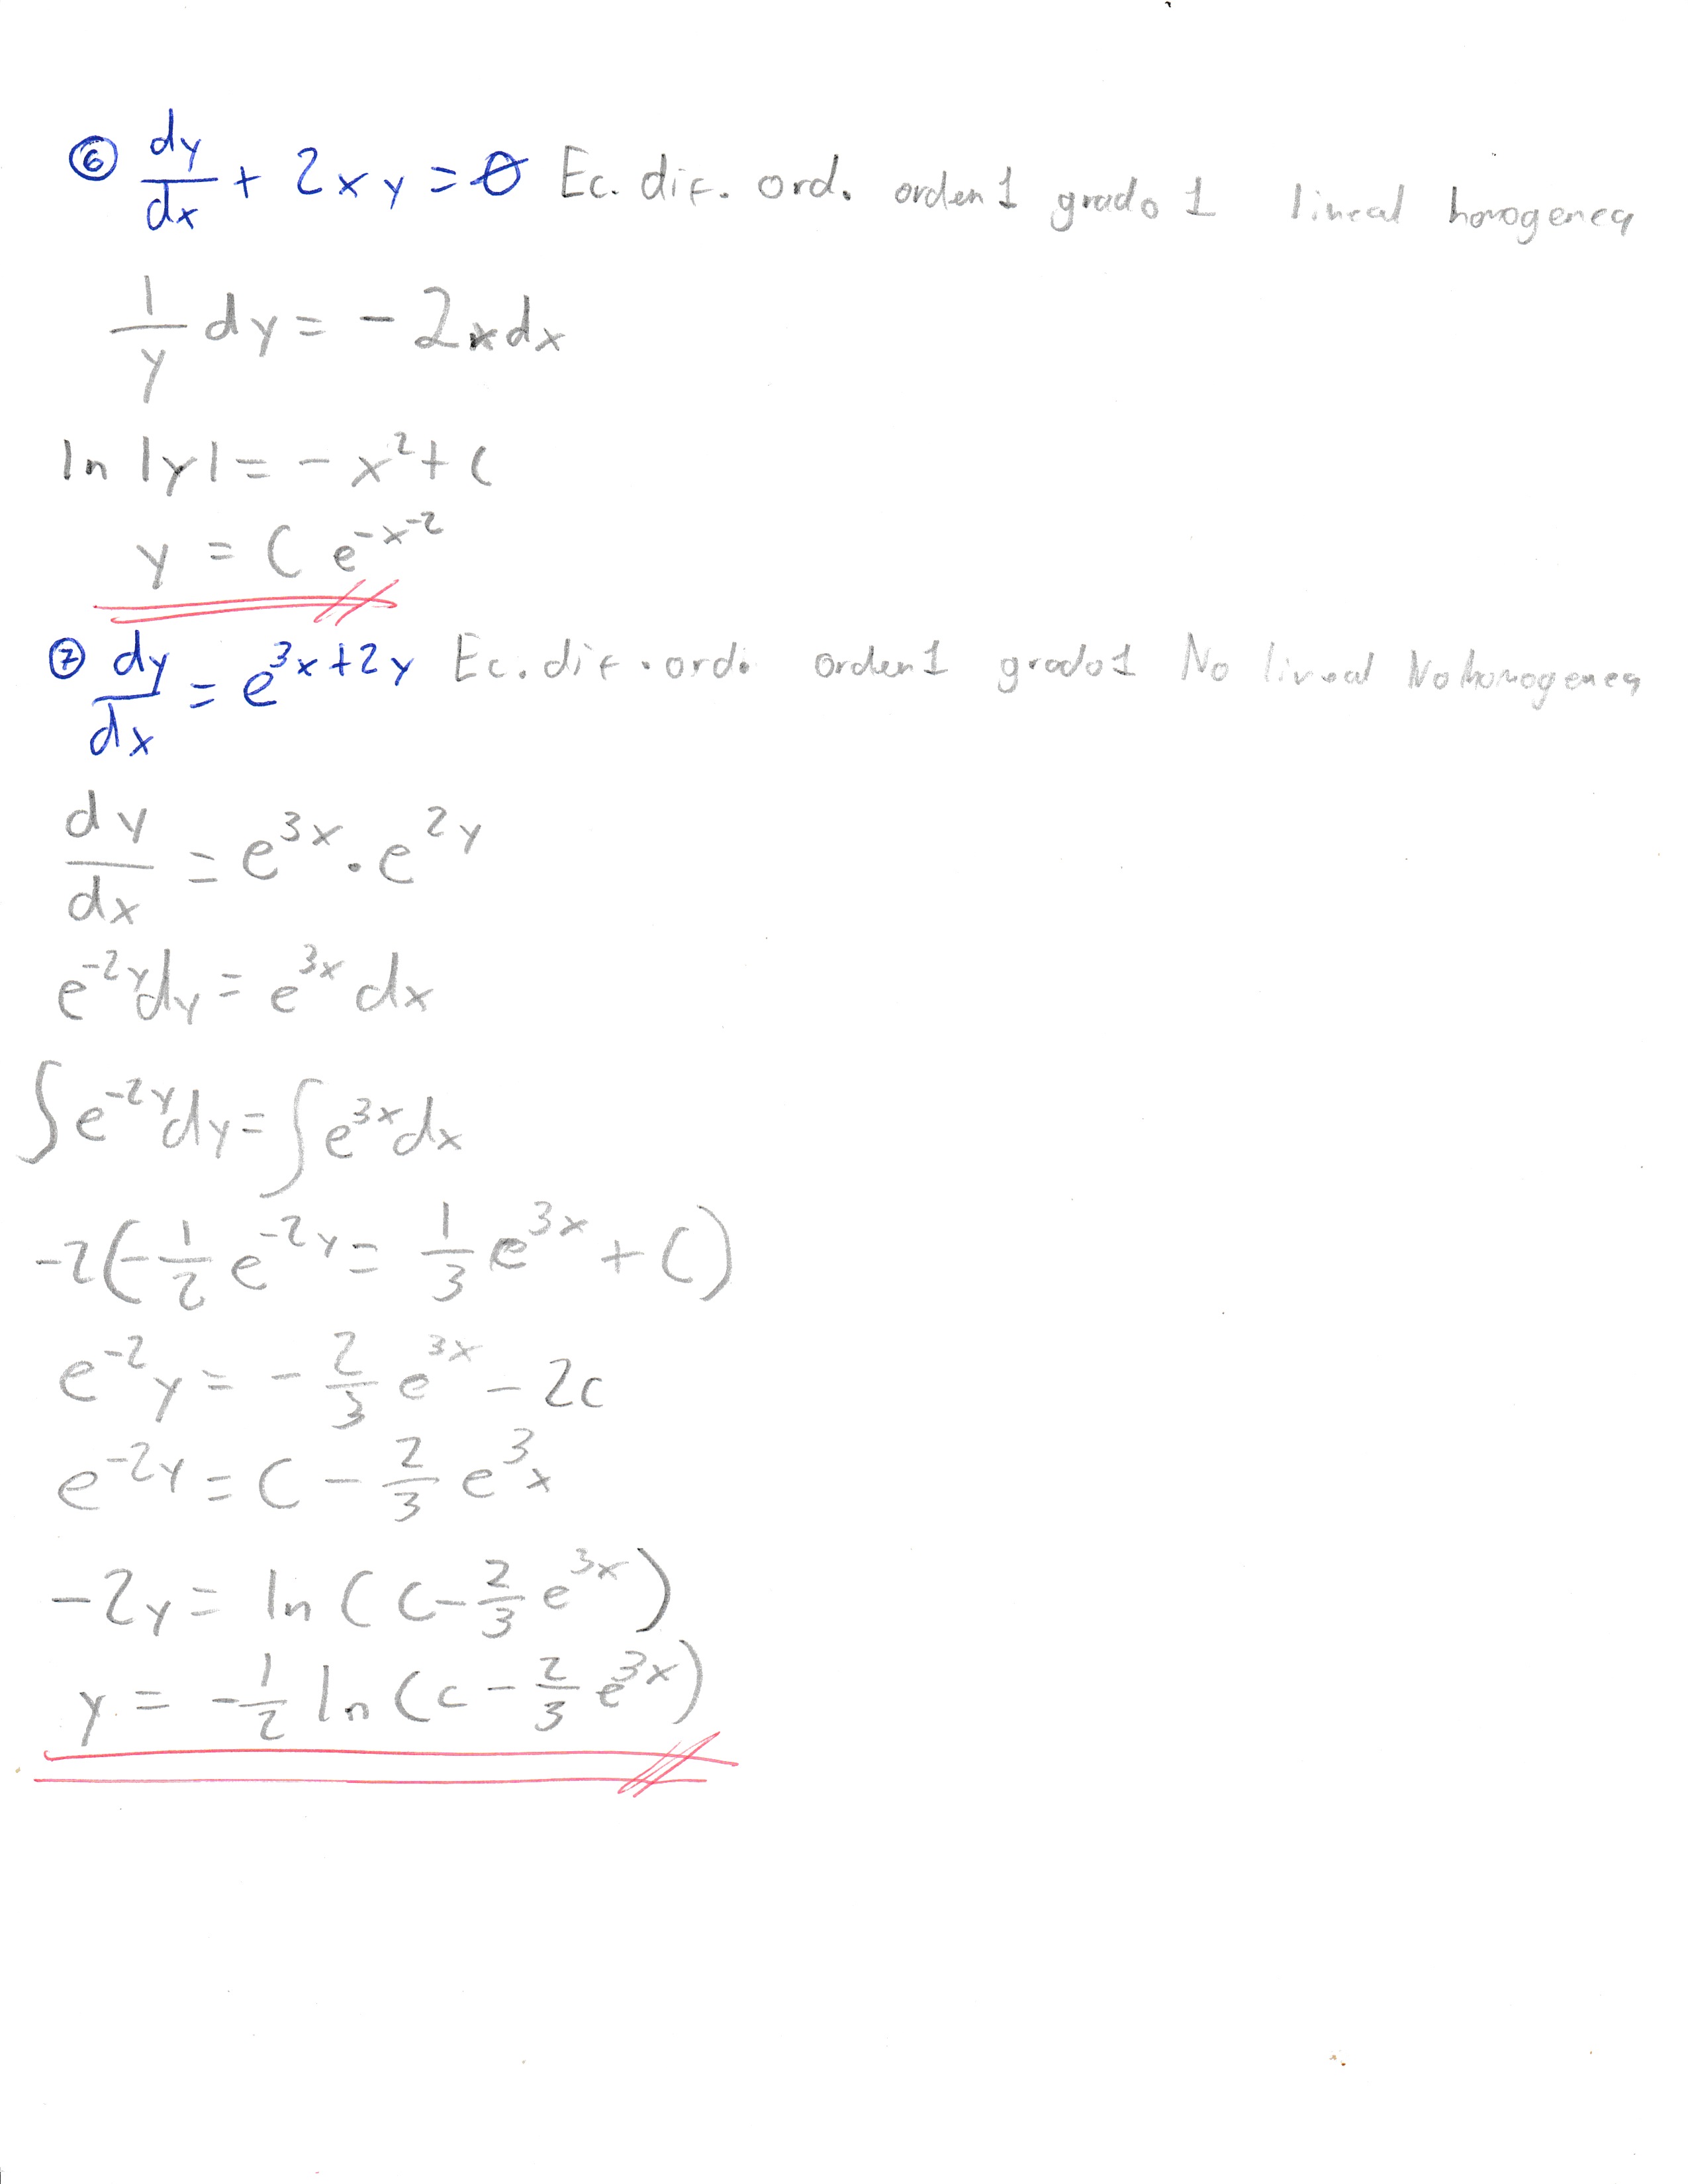 ⑥ dy/dx + 2xy = 0 Ec. dif. ord. orden 1 grado 1 lineal homogenea
1/y dy = - 2x dx
ln |y| = - x² + C
y = C e^-x^-2
⑦ dy/dx = e^3x+2y Ec. dif. ord. orden 1 grado 1 No lineal No homogenea
dy/dx = e^3x · e^2y
e^-2y dy = e^3x dx
∫ e^-2y dy = ∫ e^3x dx
-2(- 1/2 e^-2y = 1/3 e^3x + C)
e^-2 y = - 2/3 e^3x - 2c
e^-2y = C - 2/3 e^3 x
-2y = ln ( c - 2/3 e^3x )
y = - 1/2 ln ( c - 2/3 e^3x )